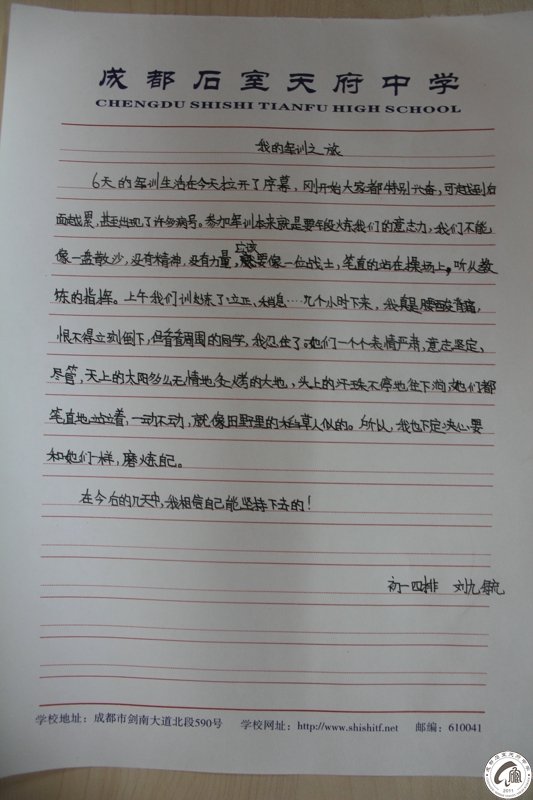 成都石室天府中学
CHENGDU SHISHI TIANFU HIGH SCHOOL
我的军训之旅
6天的军训生活在今天拉开了序幕，刚开始大家都特别兴奋，可越到后
面越累，甚至出现了许多病号。参加军训本来就是要锻炼我们的意志力，我们不能
像一盘散沙，没有精神，没有力量，应该要像一位战士，笔直的站在操场上，听从教
练的指挥。上午我们训练了立正、稍息……几个小时下来，我真是腰酸背痛，
恨不得立刻倒下，但看看周围的同学，我忍住了：她们一个个表情严肃，意志坚定、
尽管，天上的太阳多么无情地炙烤的大地，头上的汗珠不停地往下淌，她们都
笔直地站立着，一动不动，就像田野里的稻草人似的。所以，我也下定决心要
和她们一样，磨炼自己。
在今后的几天中，我相信自己能坚持下去的！
初一四排 刘九
学校地址：成都市剑南大道北段590号 学校网址：http://www.shishitf.net 邮编：610041
2011